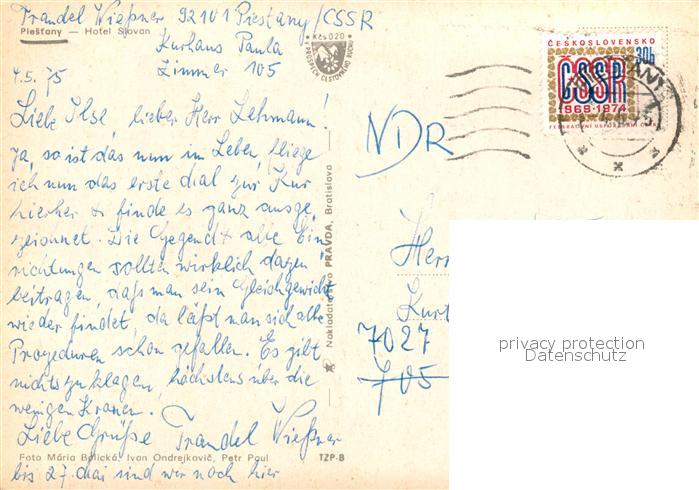 Trandel Wießner 92101 Piestany/CSSR
Piešťany — Hotel Slovan
Kurhaus Paula
Zimmer 105
4.5.75
Liebe Ilse, lieber Herr Lehmann!
Ja, so ist das nun im Leben, fliege
ich nun das erste Mal zur Kur
hierher & finde es ganz ausge-
zeichnet. Die Gegend & alle Ein
richtungen sollten wirklich dazu
beitragen, daß man sein Gleichgewicht
wieder findet, da läßt man sich alle
Prozeduren schon gefallen. Es gibt
nichts zu klagen, höchstens über die
wenigen Kronen.
Liebe Grüße Trandel Wießner
Foto Mária Bálická, Ivan Ondrejkovič, Petr Paul
TZP-8
bis 27. Mai sind wir noch hier
Kčs 0,20
Nakladateľstvo PRAVDA, Bratislava
ČESKOSLOVENSKO
30h
ČSSR
1968-1974
NDR
Herr
Kurt
7027
705
privacy protection
Datenschutz